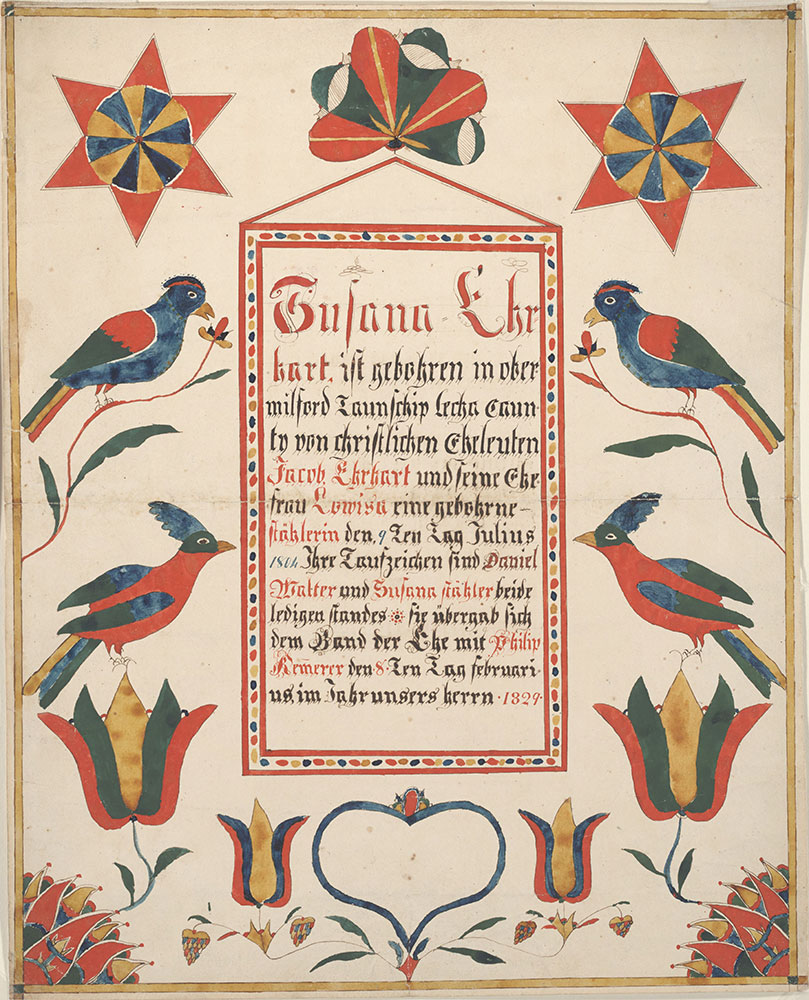 Susana Ehr
hart, ist gebohren in ober
milford Taunschip lecha Caun-
ty von christlichen Eheleuten
Jacob Ehrhart und seine Ehe
frau Lowisa eine gebohrne-
stähler in den, 9 Ten Tag Julius
Ihre Taufzeichen sind Daniel
Walter und Susana stähler beide
ledigen standes sie übergab sich
dem Band der Ehe mit Philip
Kem̄erer den 8 Ten Tag februari-
us, im Jahr unsers herrn · 1829 ·